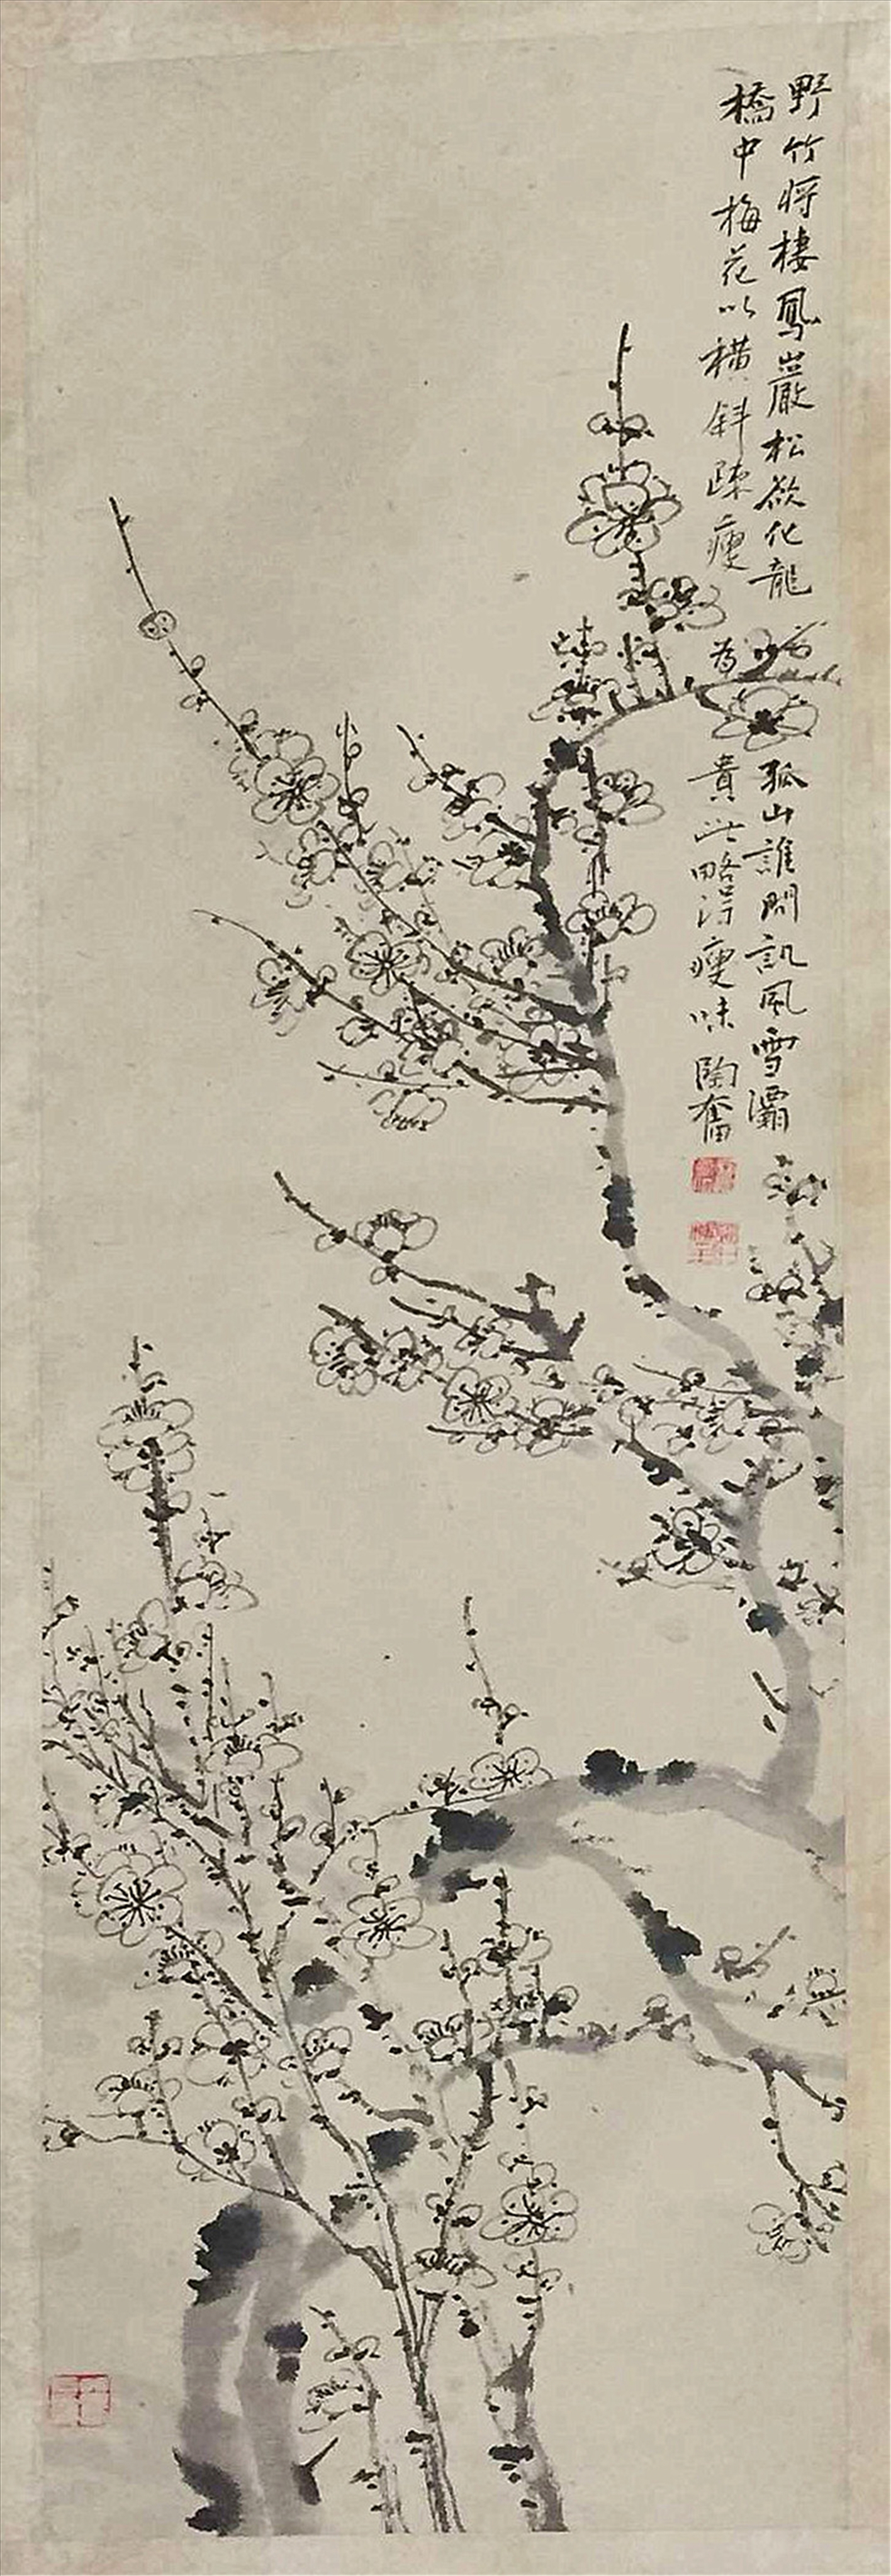 野竹将棲鳳巖松欲化龍孤山誰問訊風雪灞
橋中梅花以橫斜疎瘦為貴此略得瘦味陶奮